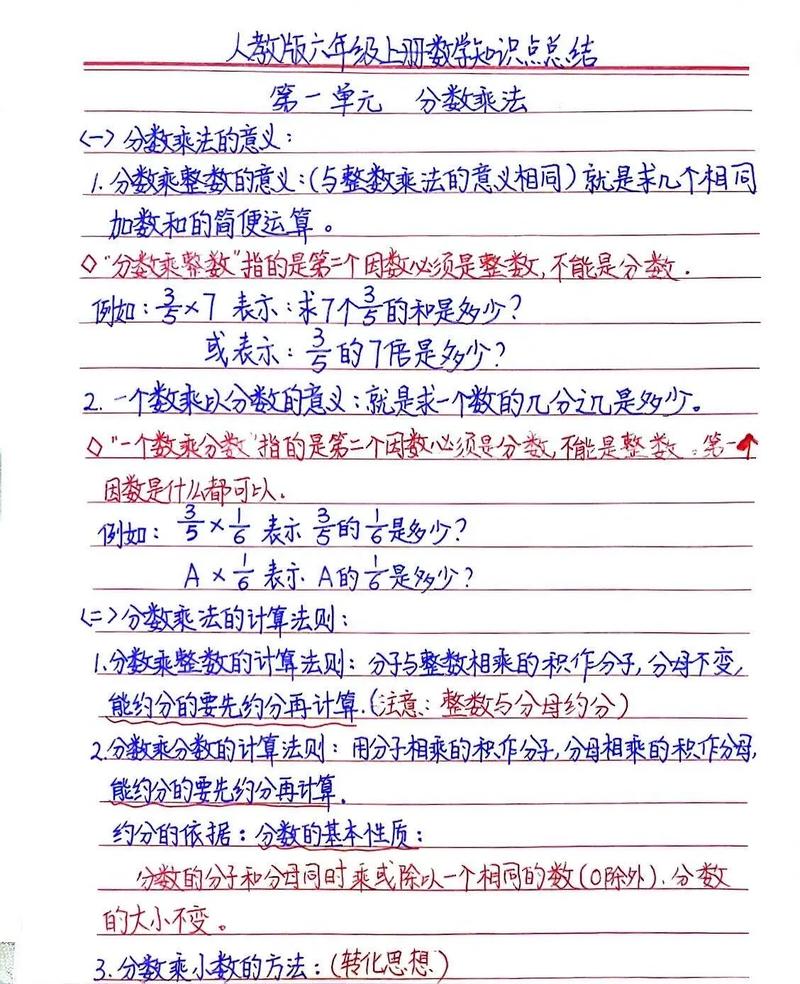 人教版六年级上册数学知识点总结
第一单元 分数乘法
<一>分数乘法的意义：
1.分数乘整数的意义：(与整数乘法的意义相同)就是求几个相同
加数和的简便运算。
◇"分数乘整数"指的是第二个因数必须是整数,不能是分数.
例如：3/5×7 表示：求7个3/5的和是多少？
或表示：3/5的7倍是多少？
2.一个数乘以分数的意义：就是求一个数的几分之几是多少。
◇"一个数乘分数"指的是第二个因数必须是分数,不能是整数.第一个
因数是什么都可以.
例如：3/5×1/6 表示 3/5的1/6是多少？
A×1/6 表示 A的1/6是多少？
<二>分数乘法的计算法则：
1.分数乘整数的计算法则：分子与整数相乘的积作分子,分母不变,
能约分的要先约分再计算.(注意：整数与分母约分)
2.分数乘分数的计算法则：用分子相乘的积作分子,分母相乘的积作分母,
能约分的要先约分再计算.
约分的依据：分数的基本性质：
分数的分子和分母同时乘或除以一个相同的数(0除外).分数
的大小不变。
3.分数乘小数的方法：(转化思想)